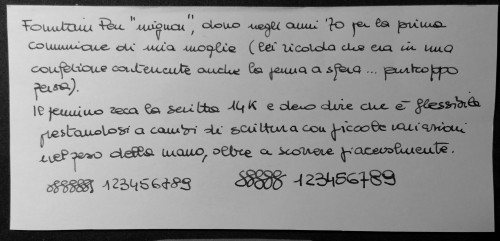 Fountain Pen "mignon", dono negli anni '70 per la prima
comunione di mia moglie (lei ricorda che era in una
confezione contenente anche la penna a sfera... purtroppo
persa).
Il pennino reca la scritta 14K e devo dire che è flessibile
prestandosi a cambi di scrittura con piccole variazioni
nel peso della mano, oltre a scorrere piacevolmente.
888888 123456789 88888 123456789